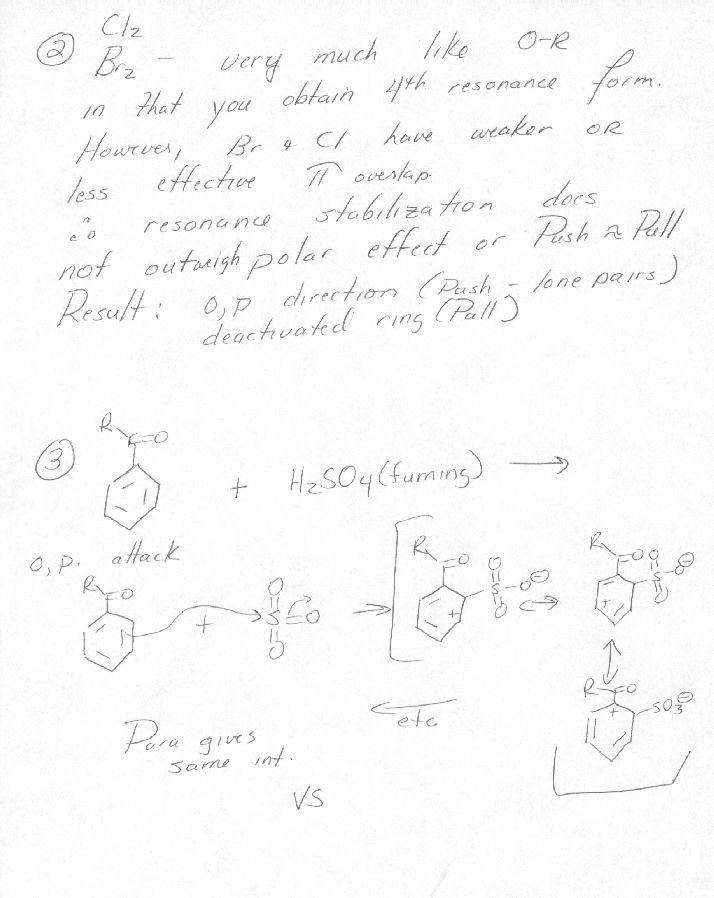 ② Cl2
Br2 - very much like O-R
in that you obtain 4th resonance form.
However, Br & Cl have weaker OR
less effective π overlap.
∴ resonance stabilization does
not outweigh polar effect or Push ≈ Pull
Result: O,P direction (Push - lone pairs)
deactivated ring (Pull)
③ R C=O
+ H2SO4 (fuming) →
O,P. attack
R =O + O=S=O O O → [ R =O + O=S-O⊖ O ↔ R =O + O=S-O⊖ O
↕
R =O + -SO3⊖
etc
Para gives
same int.
VS